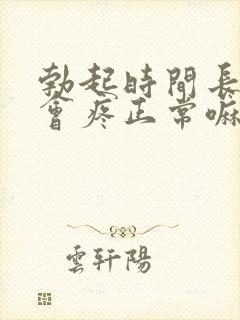 勃起時間長
會疼正常嘛
雲軒陽